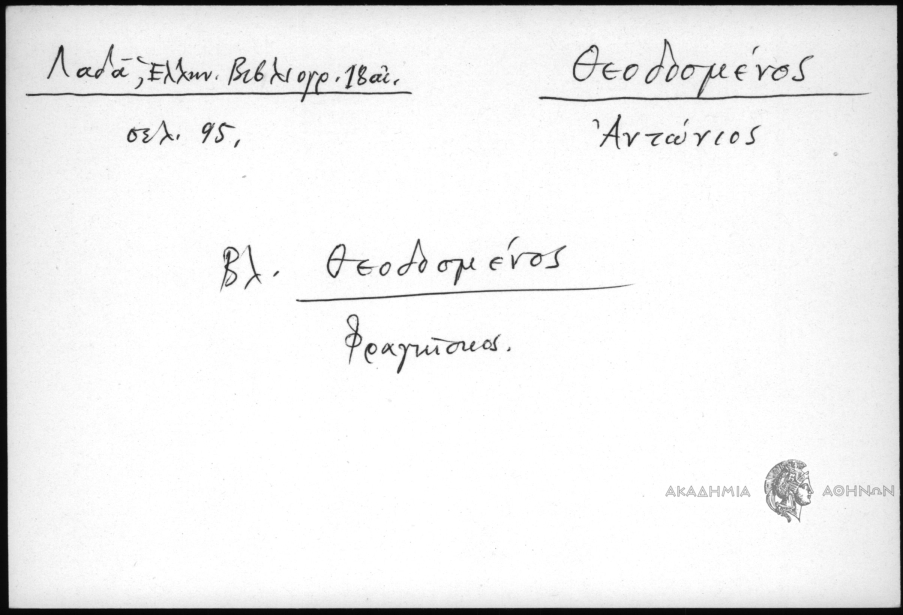 Λαδᾶ, Ἑλλην. Βιβλιογρ. 18 αἰ.
σελ. 95.
Θεοδοσμένος
Ἀντώνιος
Βλ. Θεοδοσμένος
Φραγκῖσκος.
ΑΚΑΔΗΜΙΑ ΑΘΗΝΩΝ